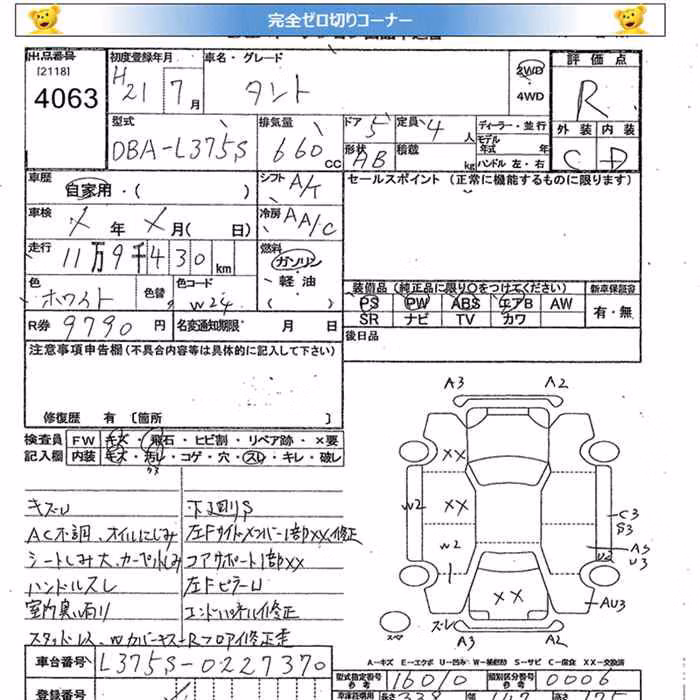 完全ゼロ切りコーナー
出品番号
[2118]
4063
初度登録年月
H21 7月
車名・グレード
タント
2WD
4WD
評価点
R
外装 内装
C D
型式
DBA-L375S
排気量
660 CC
ドア 5
形状 AB
定員 4人
積載 kg
ディーラー・並行
モデル
年式 年
ハンドル 左・右
車歴
自家用・( )
シフト A/T
セールスポイント (正常に機能するものに限ります)
車検
X年 X月( 日)
冷房 AA/C
走行
11万9千430km
燃料
ガソリン
軽油
( )
色
ホワイト
色替
色コード
W24
装備品(純正品に限り○をつけてください)
新車保証書
PS PW ABS エアB AW
有・無
SR ナビ TV カワ
R券 9790円
名変通知期限 月 日
後日品
注意事項申告欄(不具合内容等は具体的に記入して下さい)
修復歴 有 〔箇所 〕
検査員
記入欄
FW キズ・飛石・ヒビ割・リペア跡・×要
内装 キズ・汚レ・コゲ・穴・スレ・キレ・破レ
キズU
下廻りS
AC不調、オイルにじみ
左Fサイドメンバー1部XX修正
シートしみ大、カーペットしみ
コアサポート1部XX
ハンドルスレ
左FピラーU
室内臭い有り
エンドパネル修正
スタッドレス、Wカバーキズ
Rフロア修正歪
A3 A2
XX
XX
W2
W2
C3
S3
A3
U3
U2
XX
AU3
スペア
スレ
A3 A2
A-キズ E-エクボ U-凹み W-補修跡 S-サビ C-腐食 XX-交換済
車台番号 L375S-0227370
型式指定番号
参考
16010
類別区分番号
参考
0006
登録番号